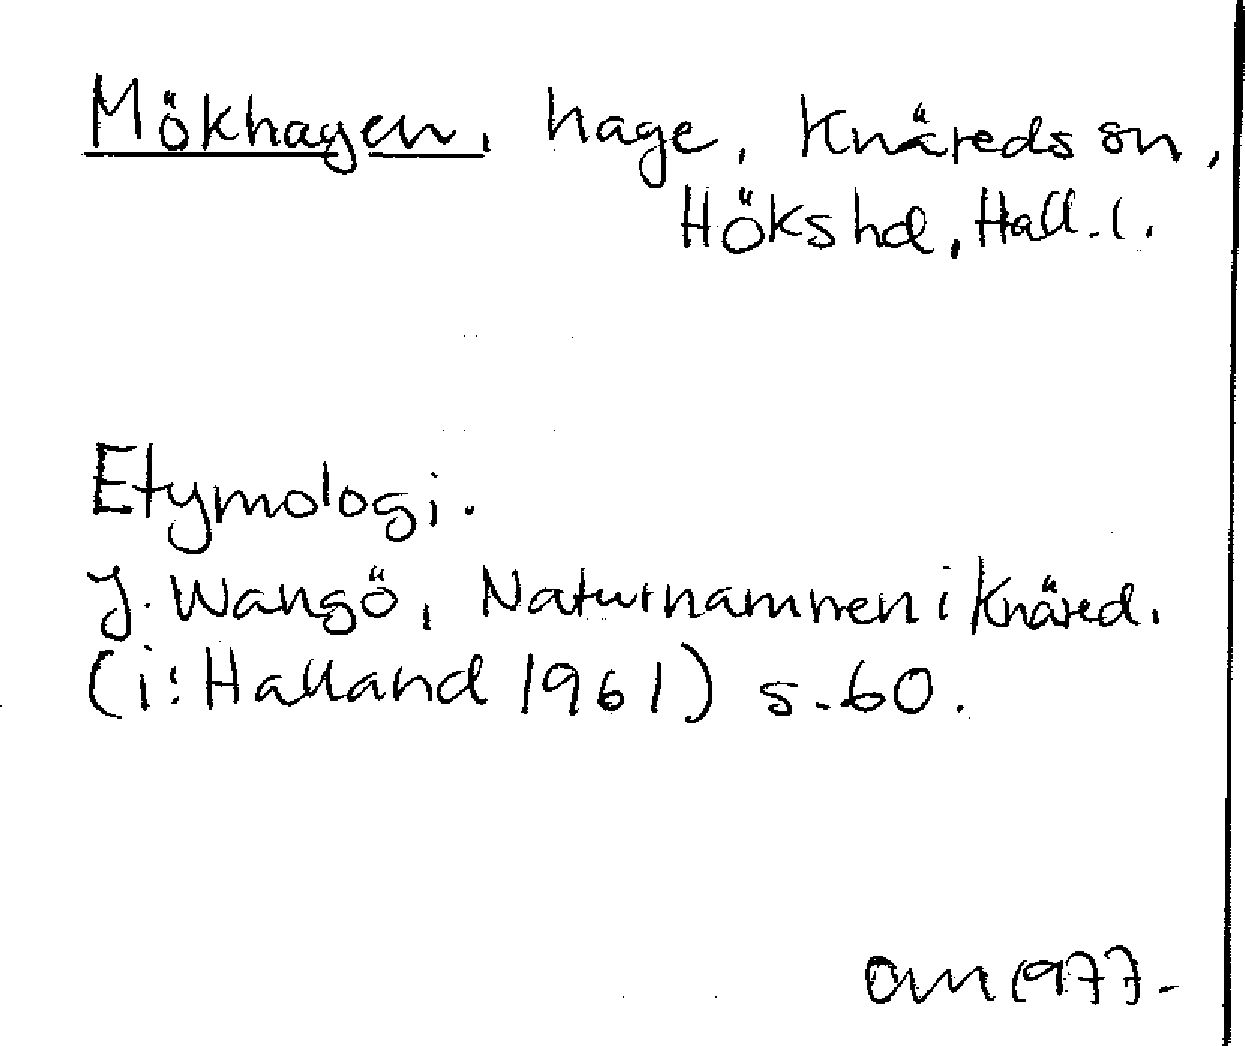 Mökhagen, hage, Knäreds sn,
Höks hd, Hall. l.
Etymologi.
J. Wangö, Naturnamnen i Knäred.
(i: Halland 1961) s. 60.
OM 1977.